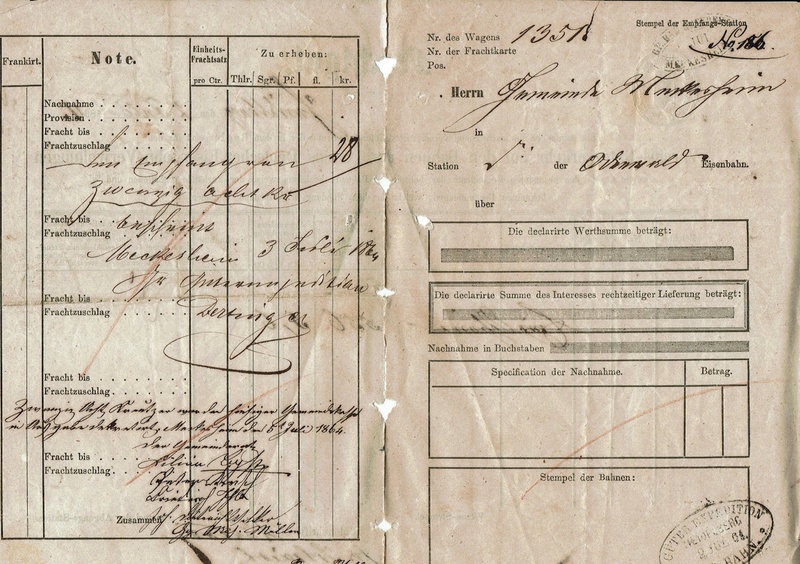 Frankirt.
Note.
Einheits-
Frachtsatz
pro Ctr.
Zu erheben:
Thlr. Sgr. Pf. fl. kr.
Nachnahme
Provision
Fracht bis
Frachtzuschlag
28
Den Empfang von
Zwanzig acht Kr
Fracht bis
Frachtzuschlag
bescheint
Meckesheim 3 Juli 1864
Fracht bis
Frachtzuschlag
Fracht bis
Frachtzuschlag
Zwanzig Acht Kreutzer von der hiesigen Gemeindskasse
in Ausgabe dekretirt, Meckesheim den 8t Juli 1864.
Der Gemeinderath
Fracht bis
Frachtzuschlag
Zusammen
Müller
Stempel der Empfangs-Station
Nr. des Wagens 1351
Nr. der Frachtkarte
Pos.
No. 186
Herrn Gemeinde Meckesheim
in
Station der Odenwald Eisenbahn.
über
Die declarirte Werthsumme beträgt:
Die declarirte Summe des Interesses rechtzeitiger Lieferung beträgt:
Nachnahme in Buchstaben
Specification der Nachnahme. Betrag.
Stempel der Bahnen:
GÜTER EXPEDITION
HEIDELBERG
BAHN.